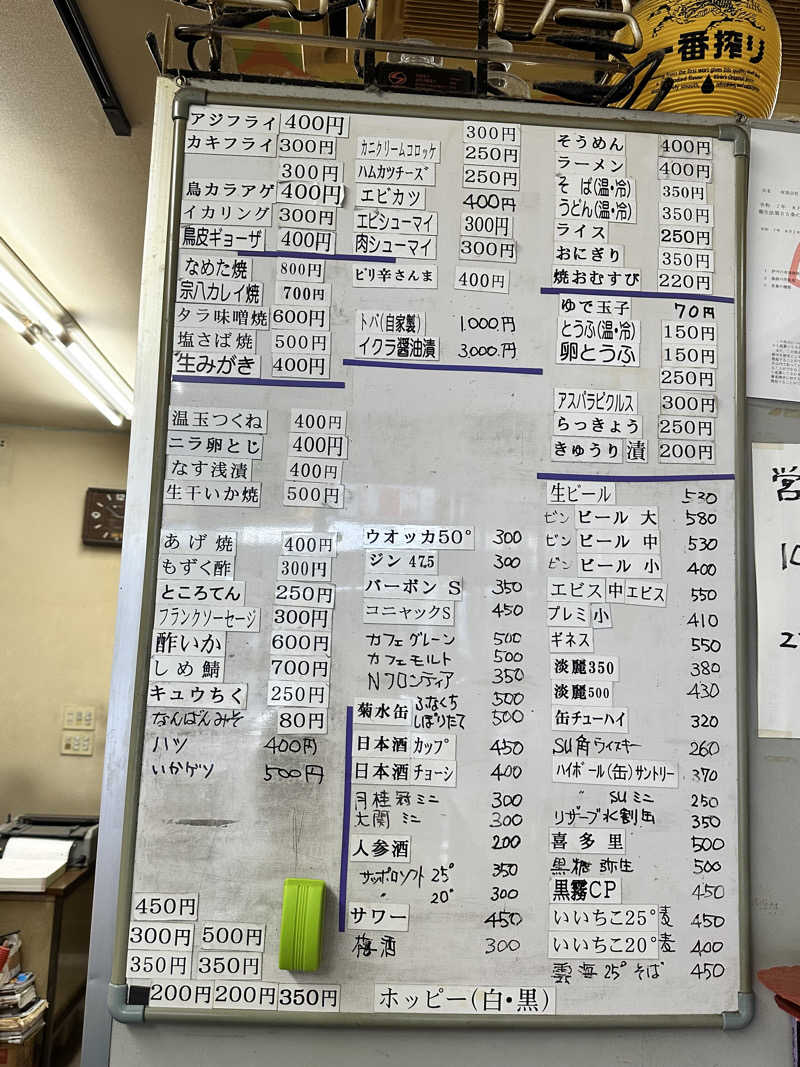 一番搾り
アジフライ 400円
カキフライ 300円
300円
鳥カラアゲ 400円
イカリング 300円
鳥皮ギョーザ 400円
なめた焼 800円
宗八カレイ焼 700円
タラ味噌焼 600円
塩さば焼 500円
生みがき 400円
温玉つくね 400円
ニラ卵とじ 400円
なす浅漬 400円
生干いか焼 500円
あげ焼 400円
もずく酢 300円
ところてん 250円
フランクソーセージ 300円
酢いか 600円
しめ鯖 700円
キュウちく 250円
なんばんみそ 80円
ハツ 400円
いかゲソ 500円
450円
300円 500円
350円 350円
200円 200円 350円
300円
カニクリームコロッケ 250円
ハムカツチーズ 250円
エビカツ 400円
エビシューマイ 300円
肉シューマイ 300円
ピリ辛さんま 400円
トバ(自家製) 1,000円
イクラ醤油漬 3,000円
ウオッカ50° 300
ジン 47.5 300
バーボン S 350
コニャックS 450
カフェグレーン 500
カフェモルト 500
Nフロンティア 350
菊水缶 ふなくち 500
しぼりたて 500
日本酒 カップ 450
日本酒 チョーシ 400
月桂冠ミニ 300
大関 ミニ 300
人参酒 200
サッポロソフト 25° 350
〃 20° 300
サワー 450
梅酒 300
ホッピー(白・黒)
そうめん 400円
ラーメン 400円
そば(温・冷) 350円
うどん(温・冷) 350円
ライス 250円
おにぎり 350円
焼おむすび 220円
ゆで玉子 70円
とうふ(温・冷) 150円
卵とうふ 150円
250円
アスパラピクルス 300円
らっきょう 250円
きゅうり漬 200円
生ビール 530
ビン ビール 大 580
ビン ビール 中 530
ビン ビール 小 400
エビス 中 エビス 550
プレミ小 410
ギネス 550
淡麗350 380
淡麗500 430
缶チューハイ 320
SU角ウイスキー 260
ハイボール(缶)サントリー 370
〃 SUミニ 250
リザーブ水割缶 350
喜多里 500
黒糖 弥生 500
黒霧CP 450
いいちこ25°麦 450
いいちこ20°麦 400
雲海25°そば 450
営